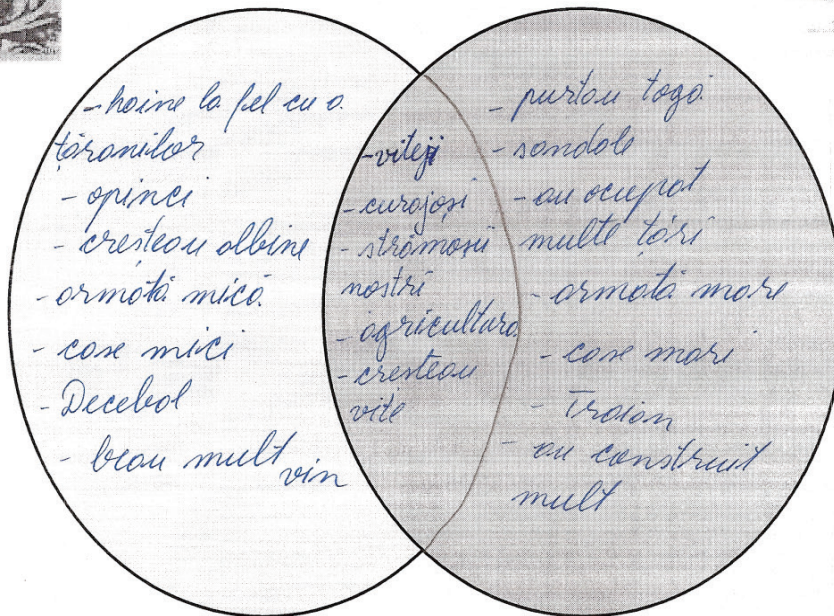 - haine la fel cu a
țăranilor
- opinci
- creșteau albine
- armată mică
- case mici
- Decebal
- beau mult
vin
- viteji
- curajoși
- strămoșii
noștri
- agricultura
- cresteau
vite
- purtau togă
- sandale
- au ocupat
multe țări
- armată mare
- case mari
- Traian
- au construit
mult